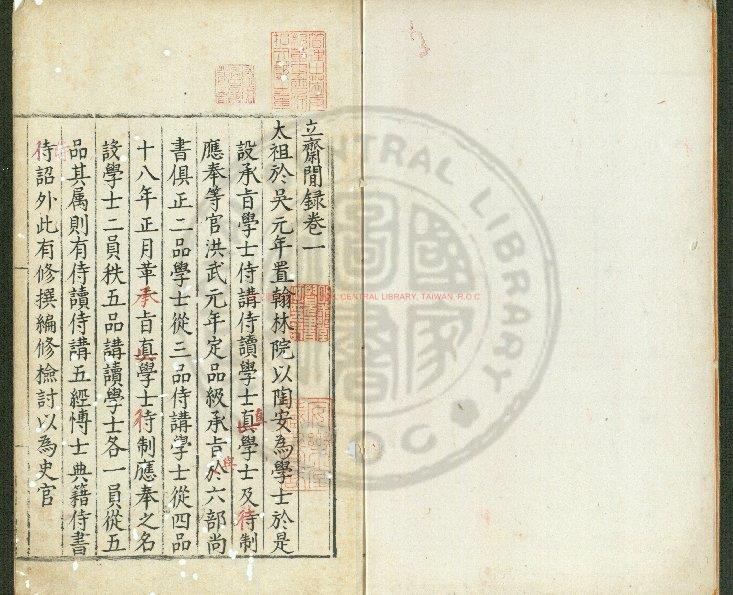 立齋閒録卷一
太祖於吳元年置翰林院以陶安為學士於是
設承旨學士侍講侍讀學士直學士及待制
應奉等官洪武元年定品級承旨於六部尚
書俱正二品學士從三品侍講學士從四品
十八年正月革承旨直學士待制應奉之名
設學士二員秩五品講讀學士各一員從五
品其属則有侍讀侍講五經博士典籍侍書
待詔外此有修撰編修檢討以為史官
CENTRAL LIBRARY, TAIWAN, R.O.C
CENTRAL LIBRARY
國家
圖書